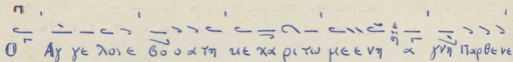 Ο Αγ γε λοι ε βο ο α τη κε χα ρι τω με ε νη α γνη Παρ θε νε